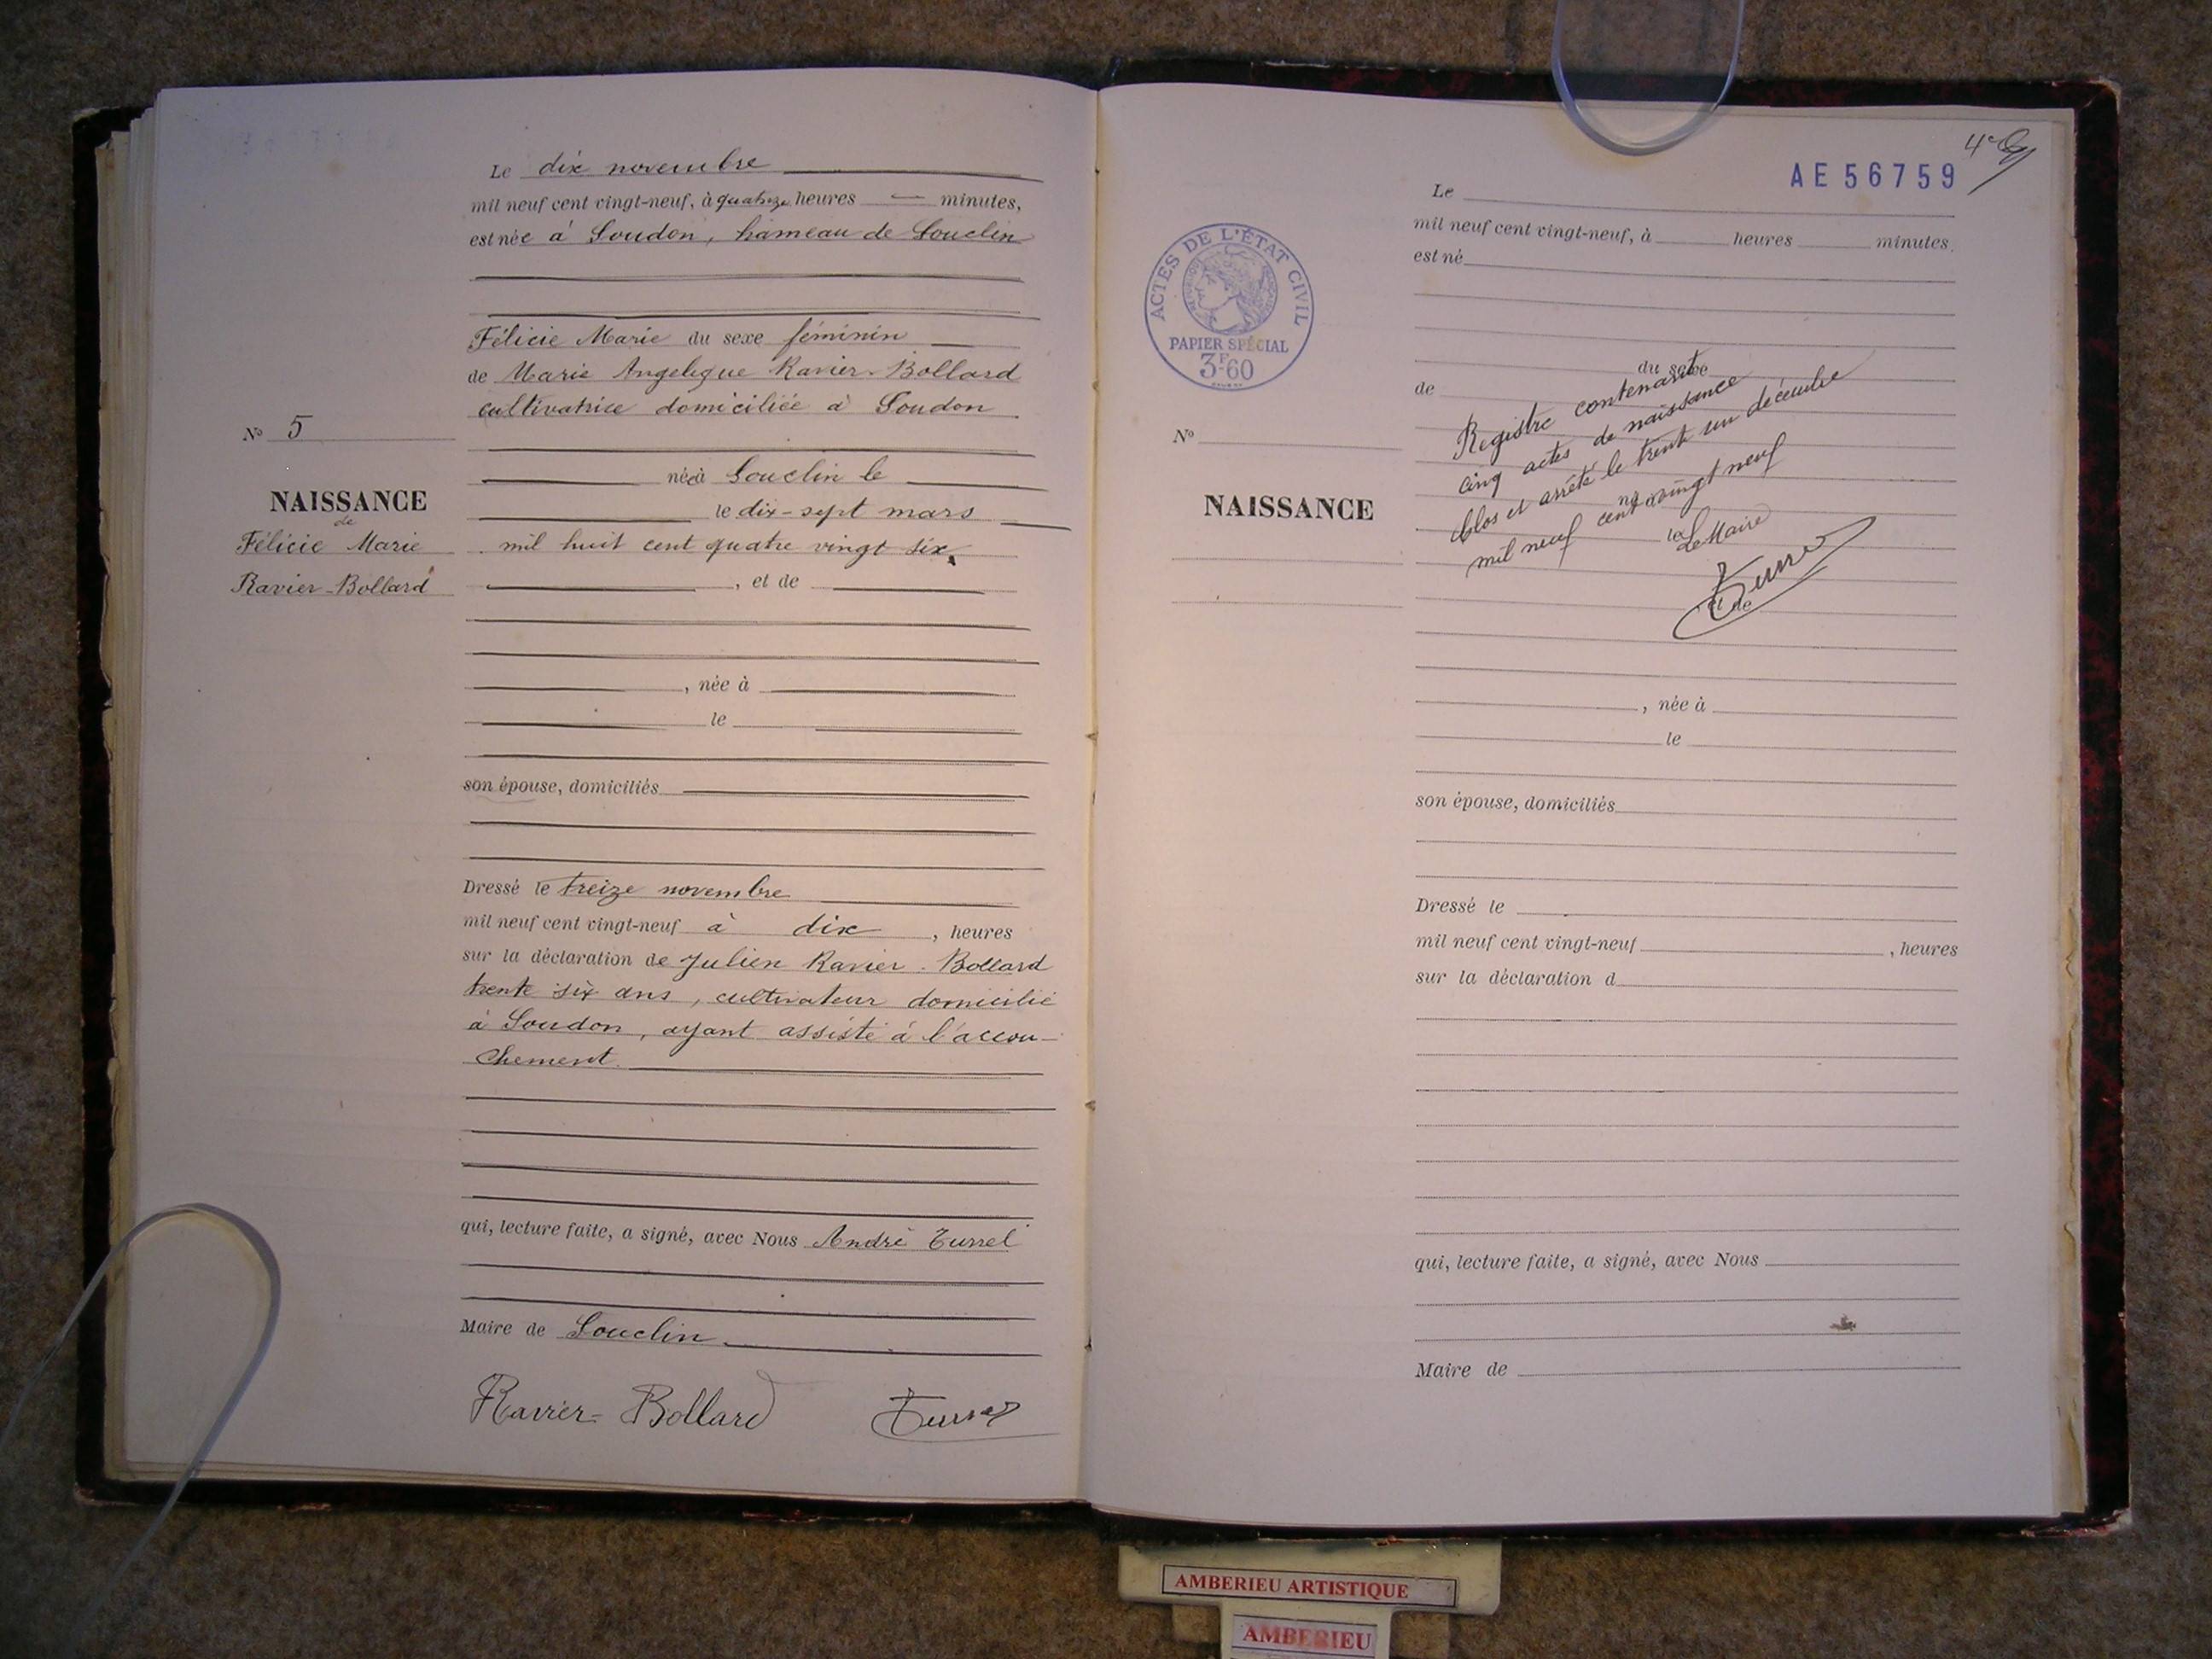 Le dix novembre
mil neuf cent vingt-neuf, à quatorze heures — minutes,
est née à Soudon, hameau de Souclin
Félicie Marie du sexe féminin
de Marie Angelique Ravier-Bollard
cultivatrice domiciliée à Soudon
née à Souclin le
le dix-sept mars
mil huit cent quatre vingt six
, et de
, née à
le
son épouse, domiciliés
Dressé le treize novembre
mil neuf cent vingt-neuf à dix , heures
sur la déclaration de Julien Ravier-Bollard
trente six ans, cultivateur domicilié
à Soudon, ayant assisté à l'accou-
chement.
qui, lecture faite, a signé, avec Nous André Turrel
Maire de Souclin
Ravier-Bollard Turrel
N° 5
NAISSANCE
de
Félicie Marie
Ravier-Bollard
4e
AE 56759
ACTES DE L'ÉTAT CIVIL
PAPIER SPÉCIAL
3F60
N°
NAISSANCE
Le
mil neuf cent vingt-neuf, à heures minutes.
est né
du sexe
de
Registre contenant
cinq actes de naissance
clos et arrêté le trent un décembre
mil neuf cent vingt neuf
né à
le
Le Maire
Turrel
et de
, née à
le
son épouse, domiciliés
Dressé le
mil neuf cent vingt-neuf , heures
sur la déclaration d
qui, lecture faite, a signé, avec Nous
Maire de
AMBERIEU ARTISTIQUE
AMBERIEU